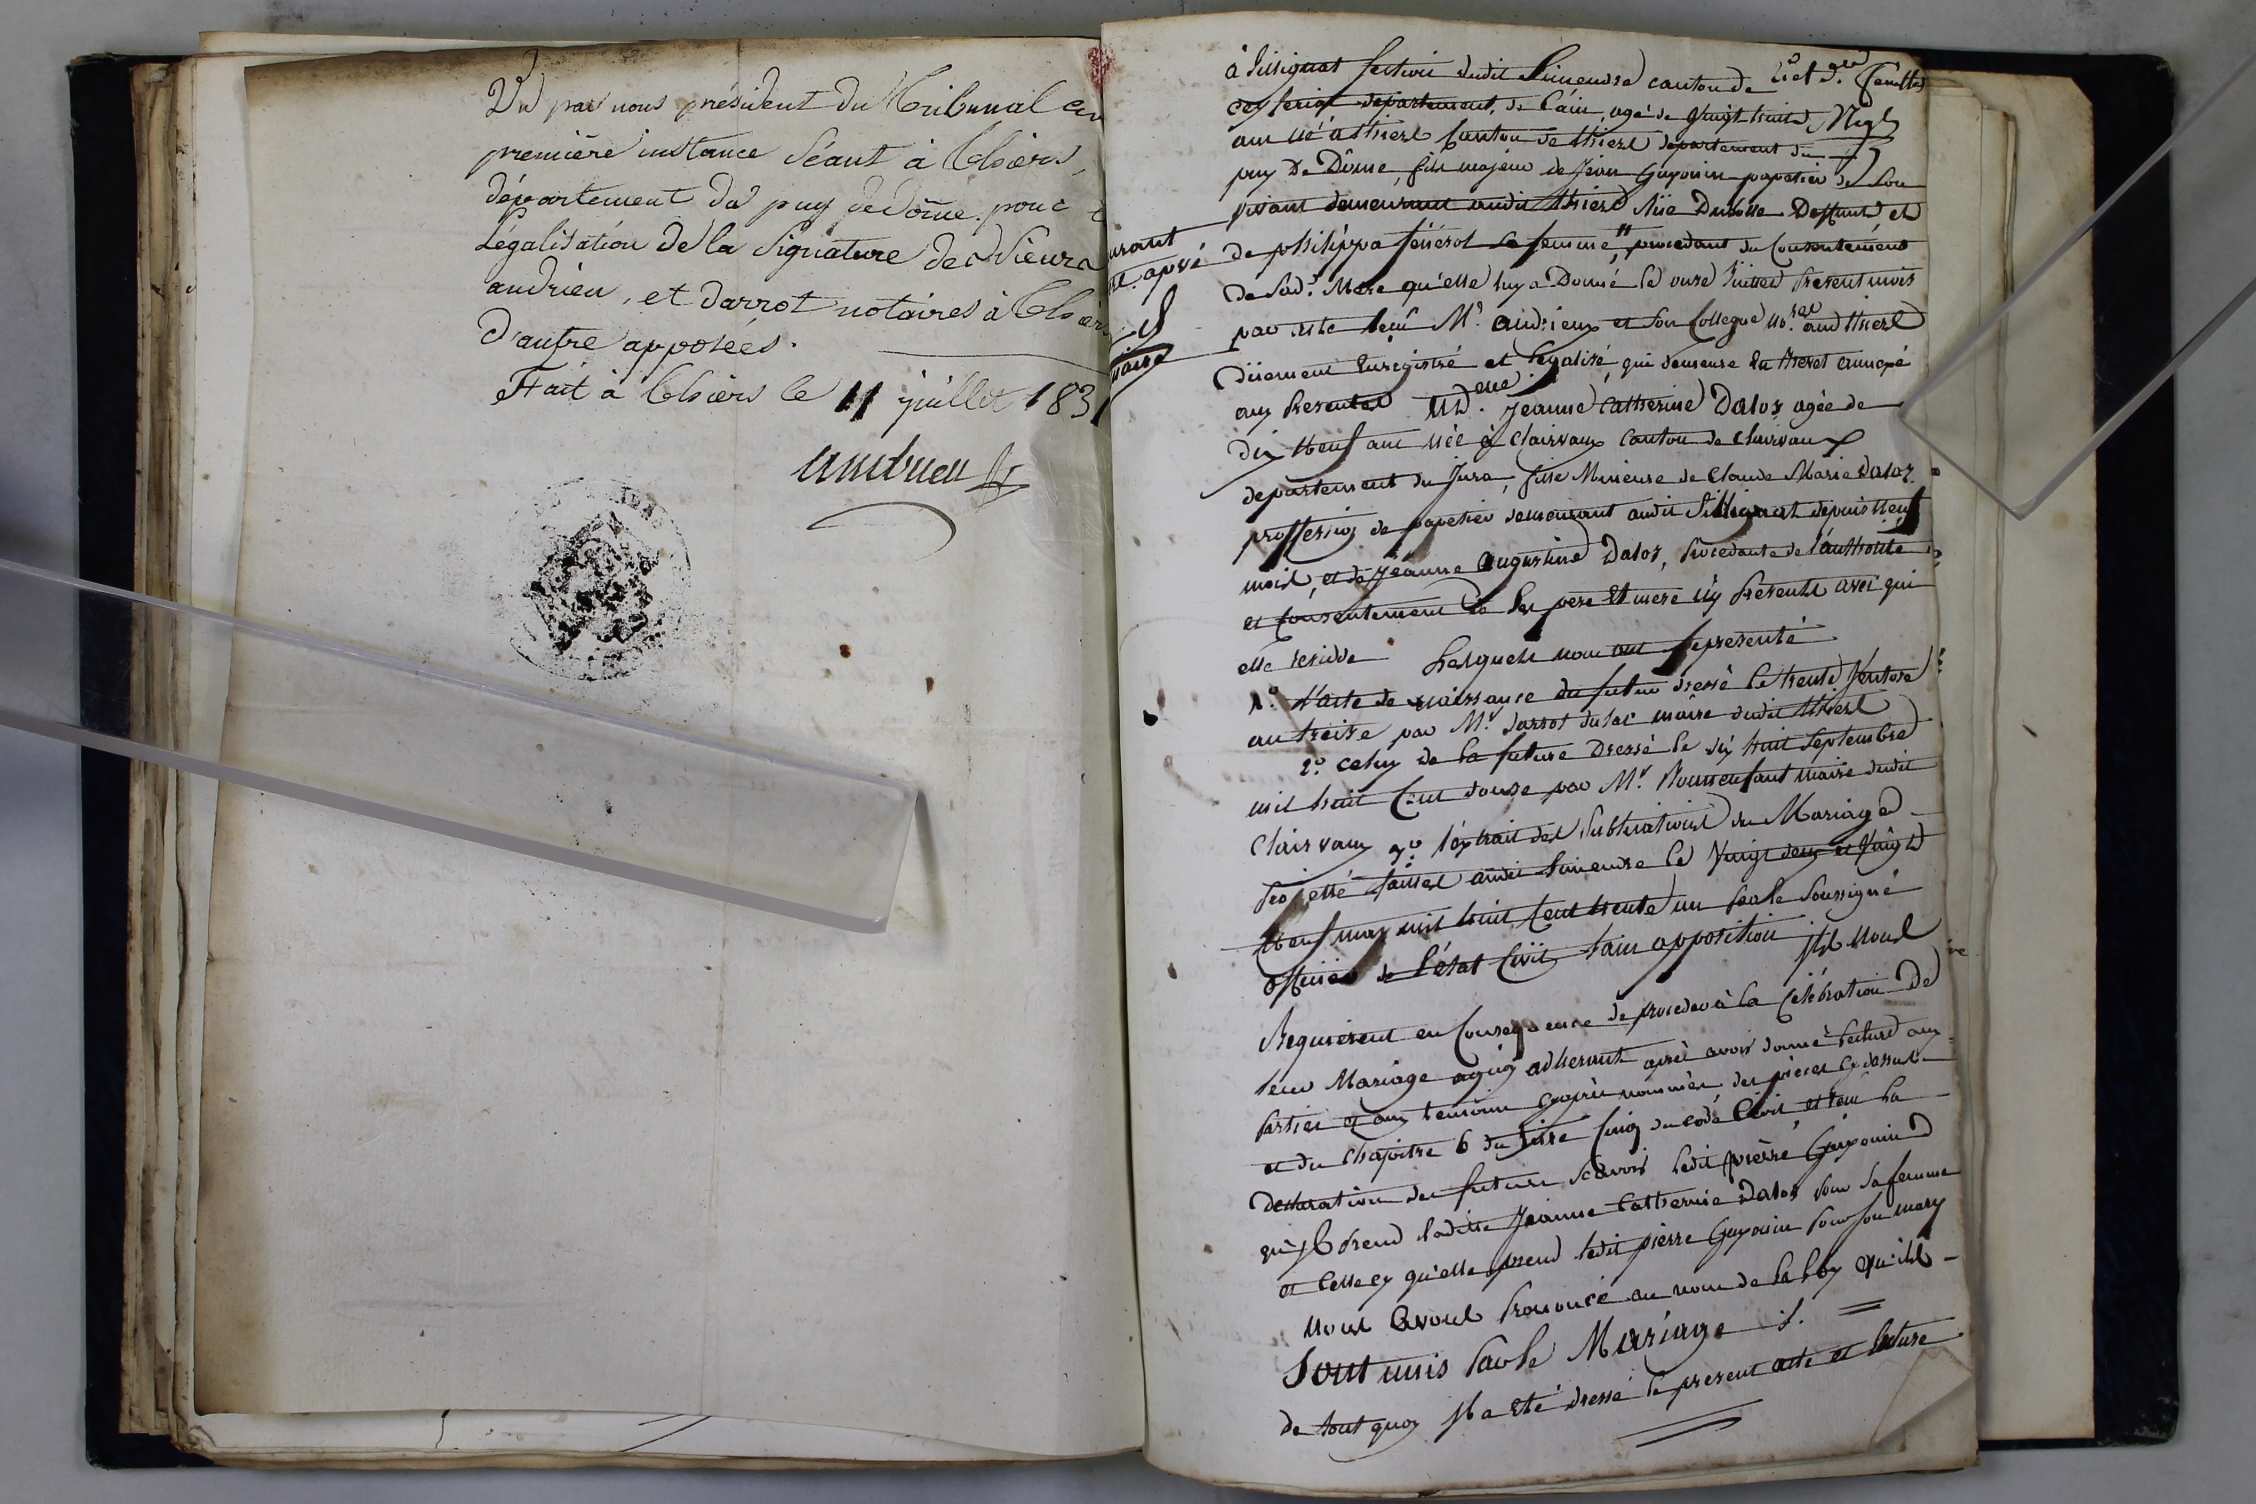 Vu par nous président du Tribunal
première instance séant à Thiers,
département du puy de dome. pour
Légalisation de la signature des Sieurs
andrieu, et darrot notaires à Thiers
d'autre apposées.
Fait à Thiers le 11 juillet 183
andrieu
urant
apré
maire
à Sillignat section dudit Simendre canton de
ceyseriat departement de l'ain, agé de Vingt huit
ans né à thiers Canton de thiers departement du
puy De Dôme, fils majeur de Jean Guyonin papetier de son
vivant demeurant audit thiers Deffunt et
de philippa sa femme, procedant du Consentement
de sad.e Mere qu'elle luy a Donné le onze Juillet present mois
par acte Mr. andrieux et son Collegue no.res audit thiers
düement Enregistré et legalisé, qui demeure annexé
aux presentes Md.elle Jeanne Catherine Daloz agée de
dix Neuf ans née à Clairvaux Canton de Clairvaux
departement du Jura, fille Mineure de Claude Marie Daloz
proffession de papetier demeurant audit Sillignat depuis Neuf
mois, et de Jeanne augustine Daloz, procedante de l'authorité
et Consentement de ses pere Et mere icy presents avec qui
elle reside Lesquels nous ont representé
1.o L'acte de naissance du futur dressé le trente Ventose
an treize par Mr. Darrot dulac maire dudit thiers
2.o celuy de la future Dressé le dix huit Septembre
mil huit Cent douze par Mr. Bonnenfant maire dudit
Clairvaux 3.o l'extrait des publications du Mariage
projetté faittes audit Simendre le Vingt deux et Vingt
Neuf may mil huit Cent trente un par le soussigné
officier de l'état Civil sans opposition ils Nous
Requierent en Consequence de proceder à la Celébration De
leur Mariage aquoy adherant aprés avoir donné lecture aux
parties et aux temoins cyaprés nommés des pièces cydessus
et du chapitre 6 du titre Cinq du code Civil et la
Declaration des futurs scavoir ledit pierre Guyonin
qu'il prend laditte Jeanne Catherine Daloz pour sa femme
et Celle cy qu'elle prend ledit pierre Guyonin pour son mary
Nous avons prononcé au nom de la loy qu'ils
Sont unis par le Mariage
de tout quoy il a été dressé le present acte et lecture